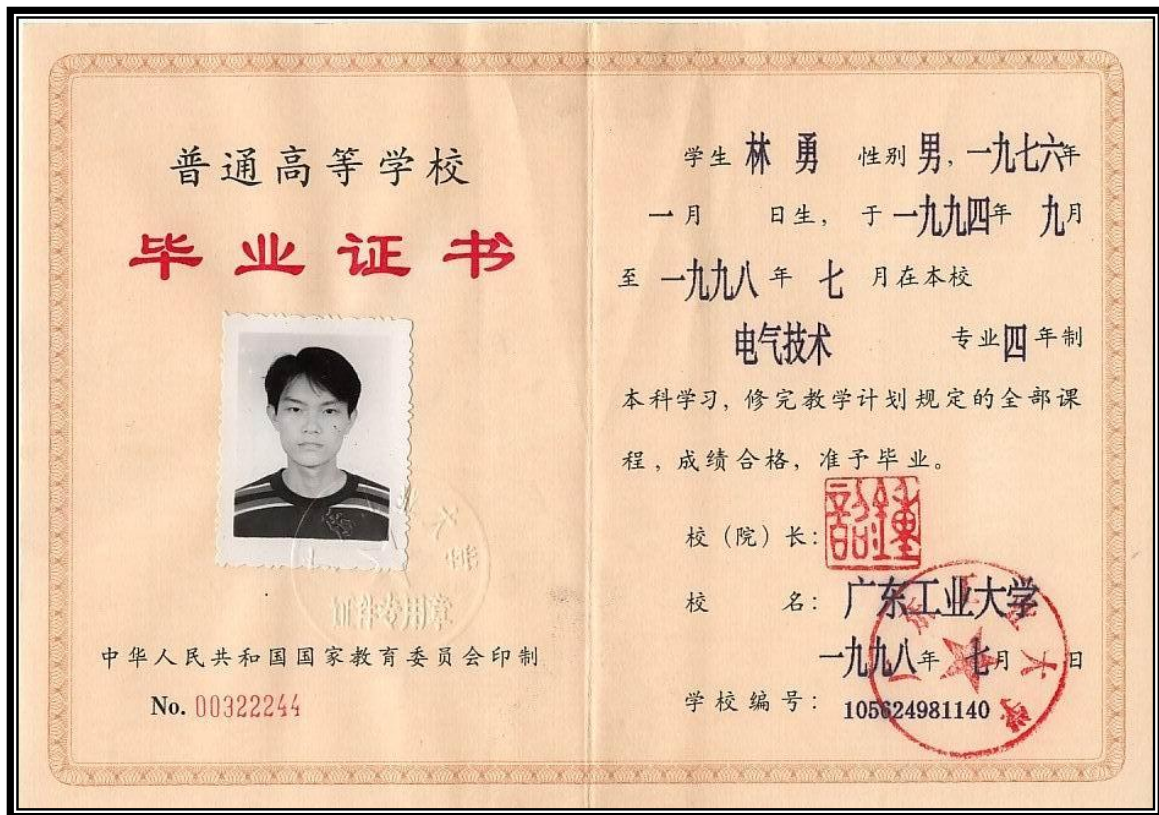 普通高等学校
毕业证书
中华人民共和国国家教育委员会印制
No. 00322244
学生 林 勇 性别 男, 一九七六年
一月 日生, 于 一九九四年 九月
至 一九九八 年 七 月在本校
电气技术 专业 四 年制
本科学习, 修完教学计划规定的全部课
程, 成绩合格, 准予毕业。
校(院)长:
校 名: 广东工业大学
一九九八年 七月 日
学校编号: 105624981140